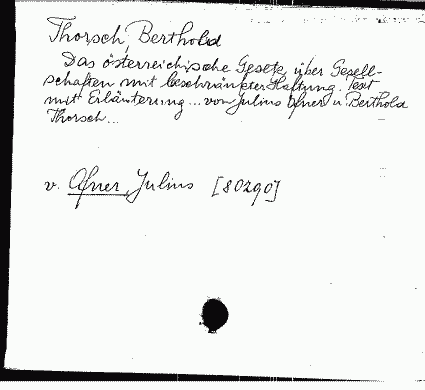 Thorsch, Berthold
Das österreichische Gesetz über Gesell-
schaften mit beschränkter Haftung. Text
mit Erläuterung... von Julius Ofner u. Berthold
Thorsch...
v. Ofner, Julius [80290]